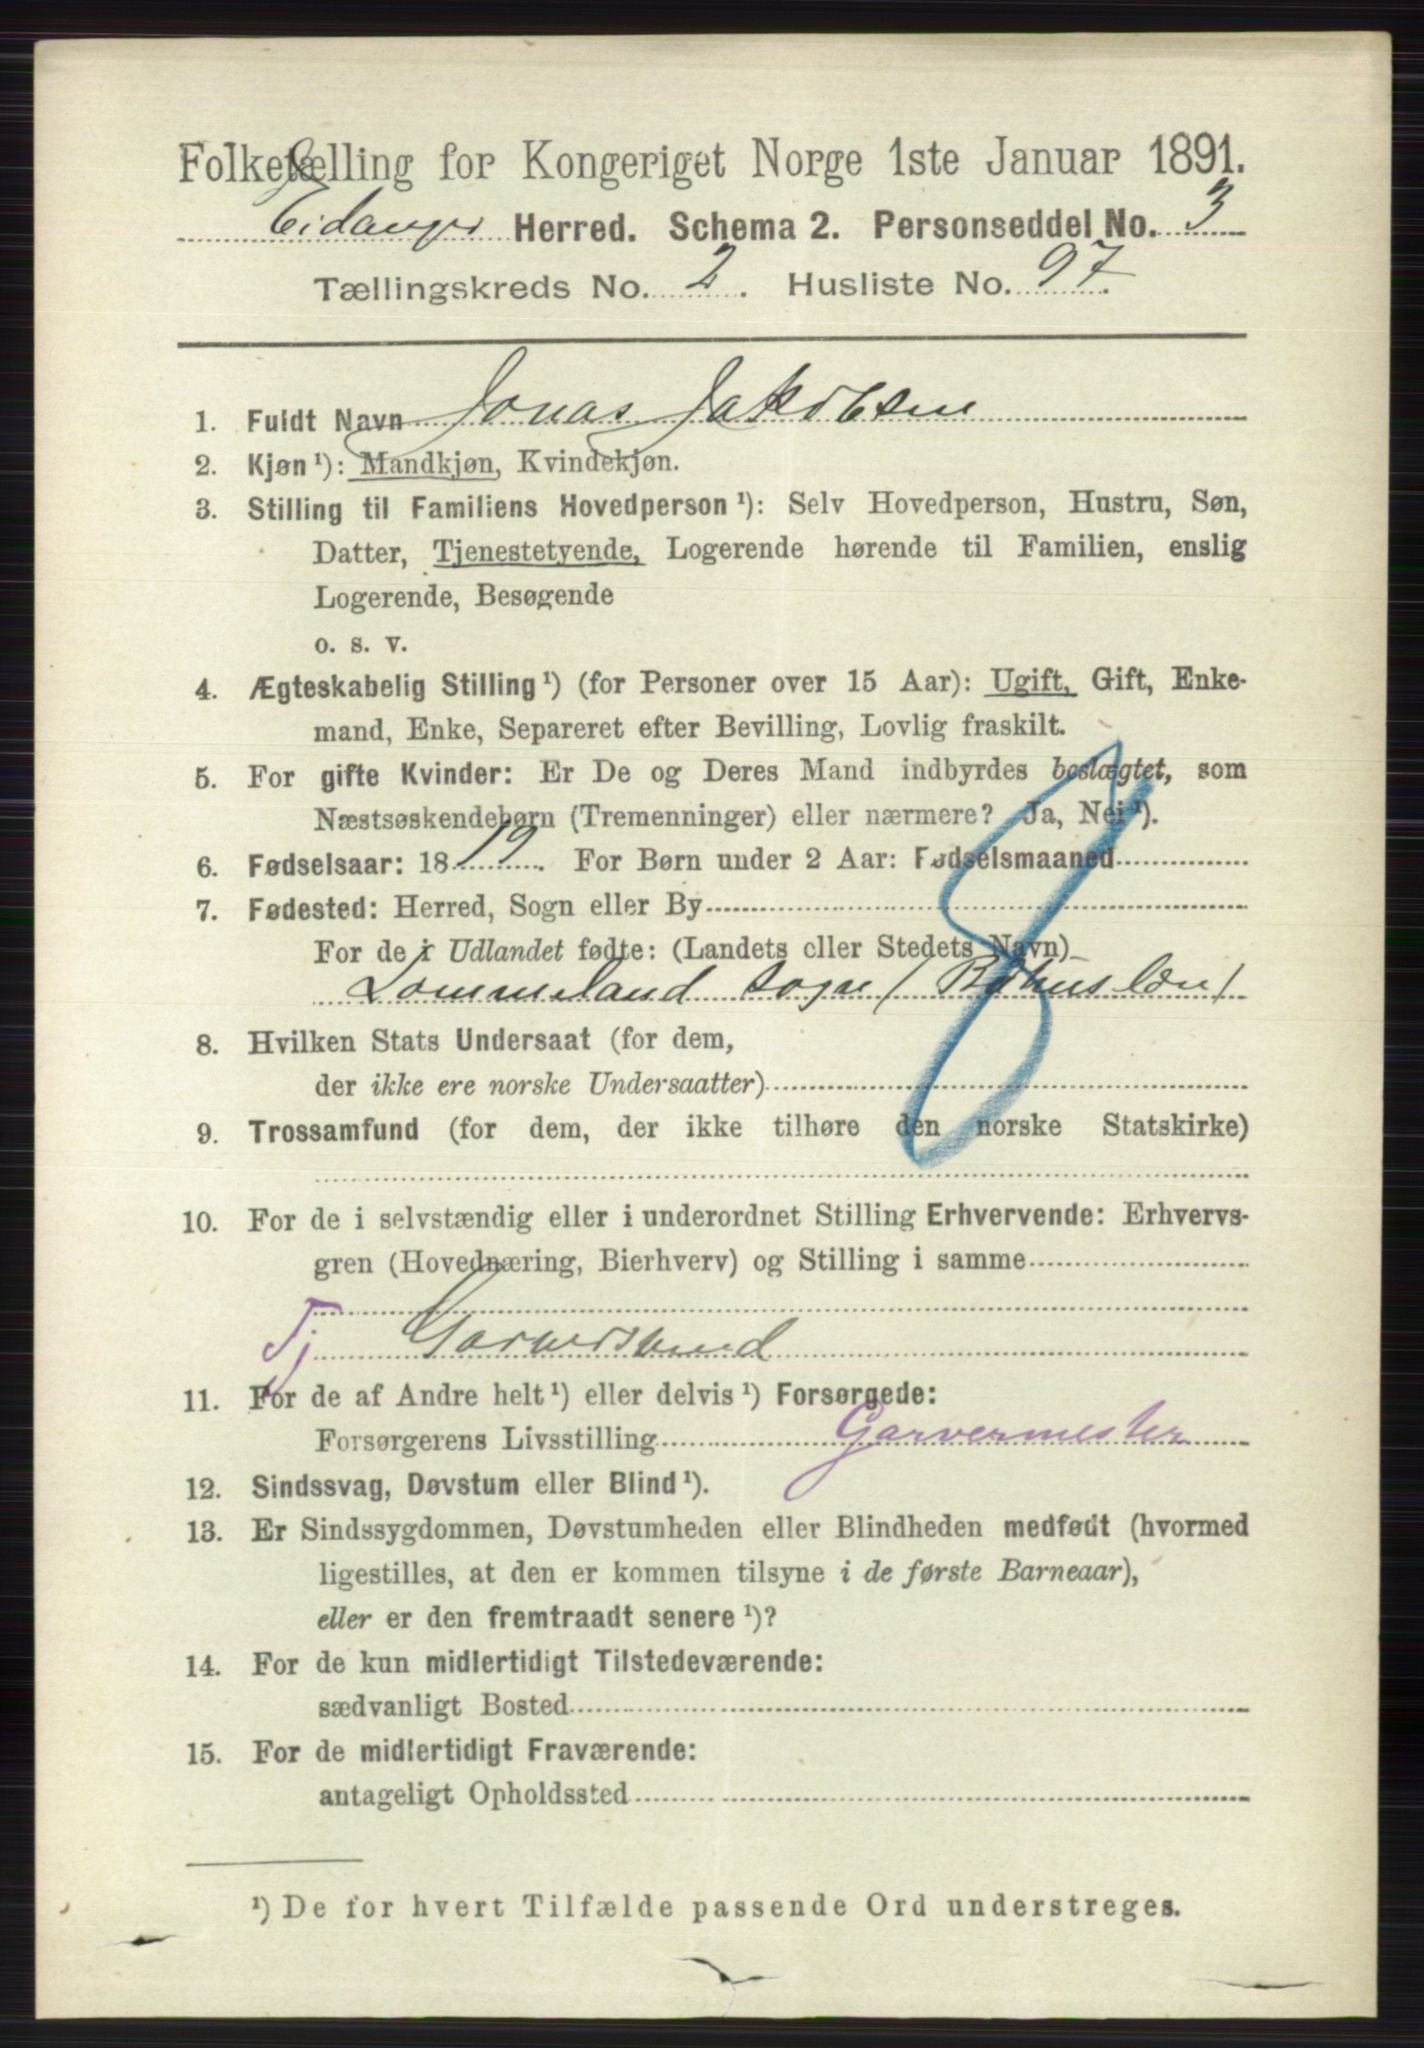 Folketælling for Kongeriget Norge 1ste Januar 1891.
Eidanger Herred. Schema 2. Personseddel No. 3
Tællingskreds No. 2. Husliste No. 97.
1. Fuldt Navn Jonas Jakobsen
2. Kjøn ¹): Mandkjøn, Kvindekjøn.
3. Stilling til Familiens Hovedperson ¹): Selv Hovedperson, Hustru, Søn,
Datter, Tjenestetyende, Logerende hørende til Familien, enslig
Logerende, Besøgende
o. s. v.
4. Ægteskabelig Stilling ¹) (for Personer over 15 Aar): Ugift, Gift, Enke-
mand, Enke, Separeret efter Bevilling, Lovlig fraskilt.
5. For gifte Kvinder: Er De og Deres Mand indbyrdes beslægtet, som
Næstsøskendebørn (Tremenninger) eller nærmere? Ja, Nei ¹).
6. Fødselsaar: 18 19. For Børn under 2 Aar: Fødselsmaaned
7. Fødested: Herred, Sogn eller By
For de i Udlandet fødte: (Landets eller Stedets Navn)
Lommeland sogn (Bohuslæn)
8. Hvilken Stats Undersaat (for dem,
der ikke ere norske Undersaatter)
8
9. Trossamfund (for dem, der ikke tilhøre den norske Statskirke)
10. For de i selvstændig eller i underordnet Stilling Erhvervende: Erhvervs-
gren (Hovednæring, Bierhverv) og Stilling i samme
Tj Garversvend
11. For de af Andre helt ¹) eller delvis ¹) Forsørgede:
Forsørgerens Livsstilling Garvermester
12. Sindssvag, Døvstum eller Blind ¹).
13. Er Sindssygdommen, Døvstumheden eller Blindheden medfødt (hvormed
ligestilles, at den er kommen tilsyne i de første Barneaar),
eller er den fremtraadt senere ¹)?
14. For de kun midlertidigt Tilstedeværende:
sædvanligt Bosted
15. For de midlertidigt Fraværende:
antageligt Opholdssted
¹) De for hvert Tilfælde passende Ord understreges.